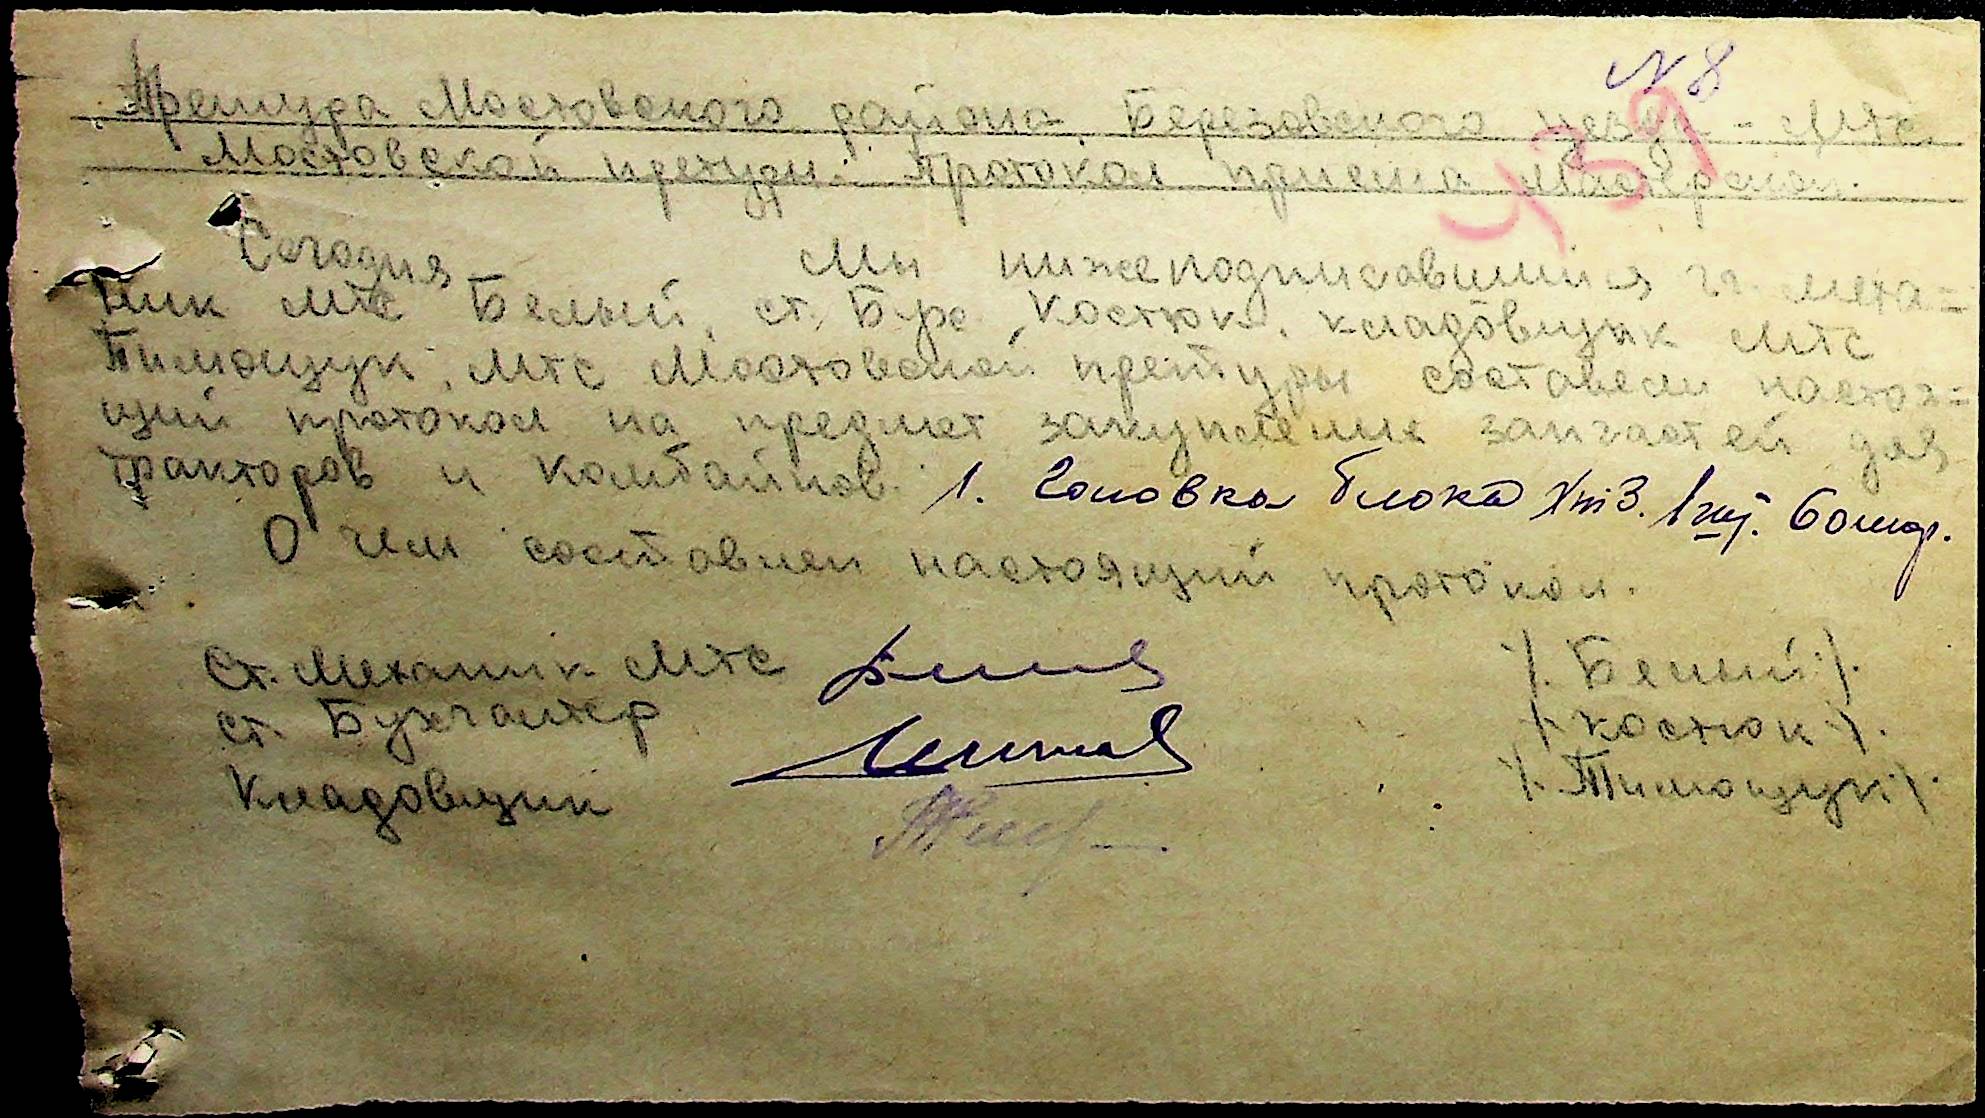 № 8
Претура Мостовского района, Березовского уезда - МТС
Мостовской претуры. Протокол приема мастерской.
439
Сегодня Мы нижеподписавшийся гр. меха=
ник МТС Белый, ст. Бух. Костюк, кладовщик МТС
Тимощук, МТС Мостовской претуры составели настоя=
щий протокол на предмет закупление запчастей для
тракторов и комбайнов. 1. Головка блока ХТЗ. 1 шт. 60 мар.
О чем составлен настоящий протокол.
Ст. Механик МТС /. Белый /.
ст. Бухгалтер /. Костюк /.
Кладовщик /. Тимощук /.